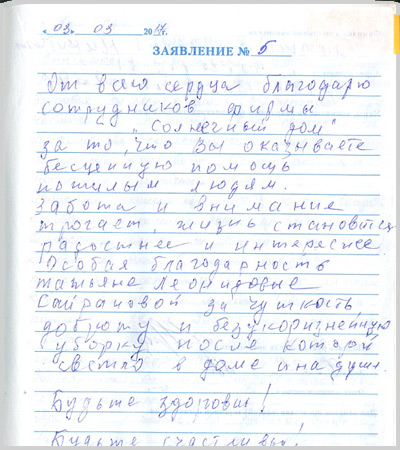 «03» 03 2017г.
ЗАЯВЛЕНИЕ № 5
От всего сердца благодарю
сотрудников фирмы
"Солнечный дом"
за то, что Вы оказываете
бесценную помощь
пожилым людям.
Забота и внимание
трогает, жизнь становится
радостнее и интереснее
Особая благодарность
татьяне Леонидовне
за чуткость
доброту и безукоризненную
уборку после которой
светло в доме и на душе.
Будьте здоровы!
Будьте счастливы!